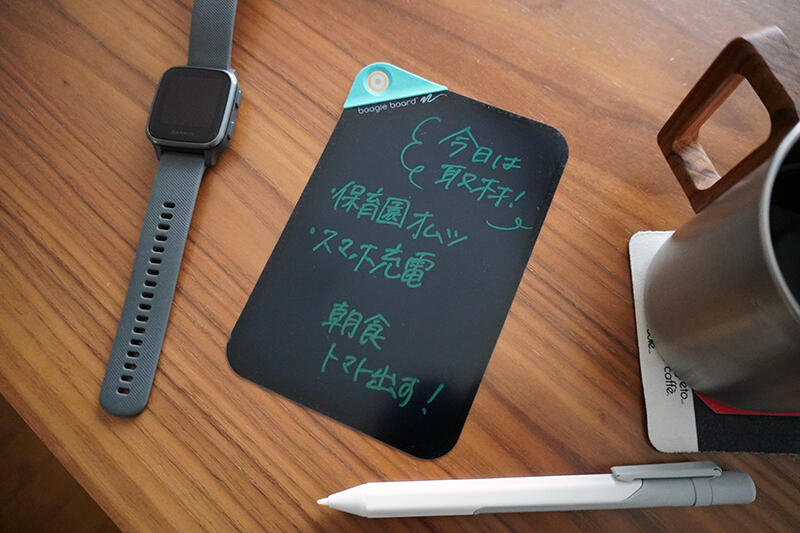 GARMIN
boogie board
今日は
取材!
・保育園オムツ
・スマホ充電
朝食
トマト出す!
caffè